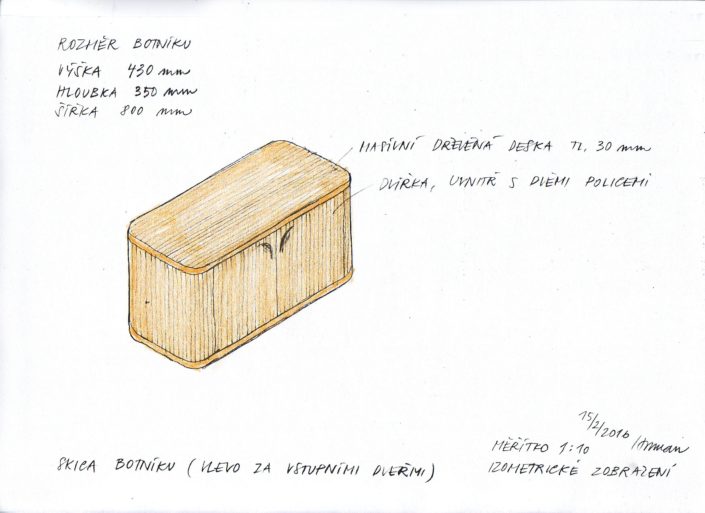 ROZMĚR BOTNÍKU
VÝŠKA 430 mm
HLOUBKA 350 mm
ŠÍŘKA 800 mm
MASIVNÍ DŘEVĚNÁ DESKA TL. 30 mm
DVÍŘKA, UVNITŘ S DVĚMI POLICEMI
15/2/2016
MĚŘÍTKO 1:10
IZOMETRICKÉ ZOBRAZENÍ
SKICA BOTNÍKU (VLEVO ZA VSTUPNÍMI DVEŘMI)